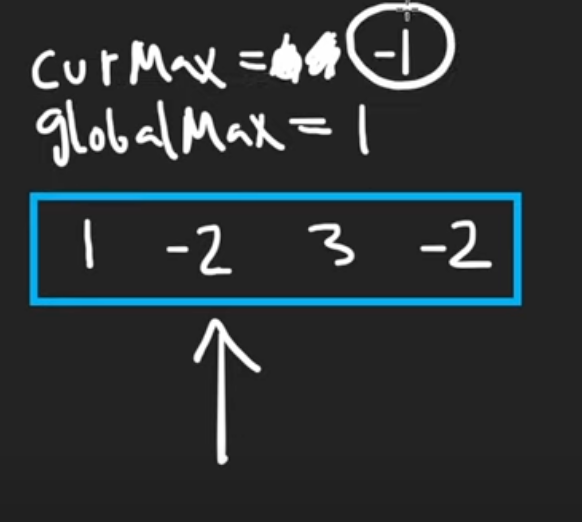 curMax = -1
globalMax = 1
1 -2 3 -2